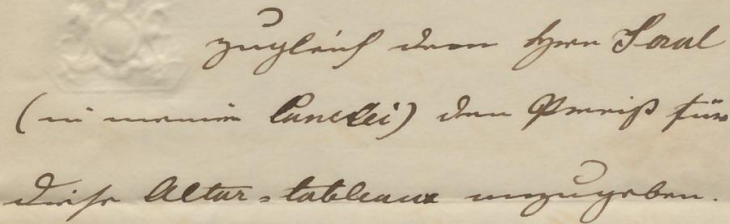 zugleich dem Herrn Saal
(in meiner Canclei) den Preiß für
diese Altar=tableaux anzugeben.